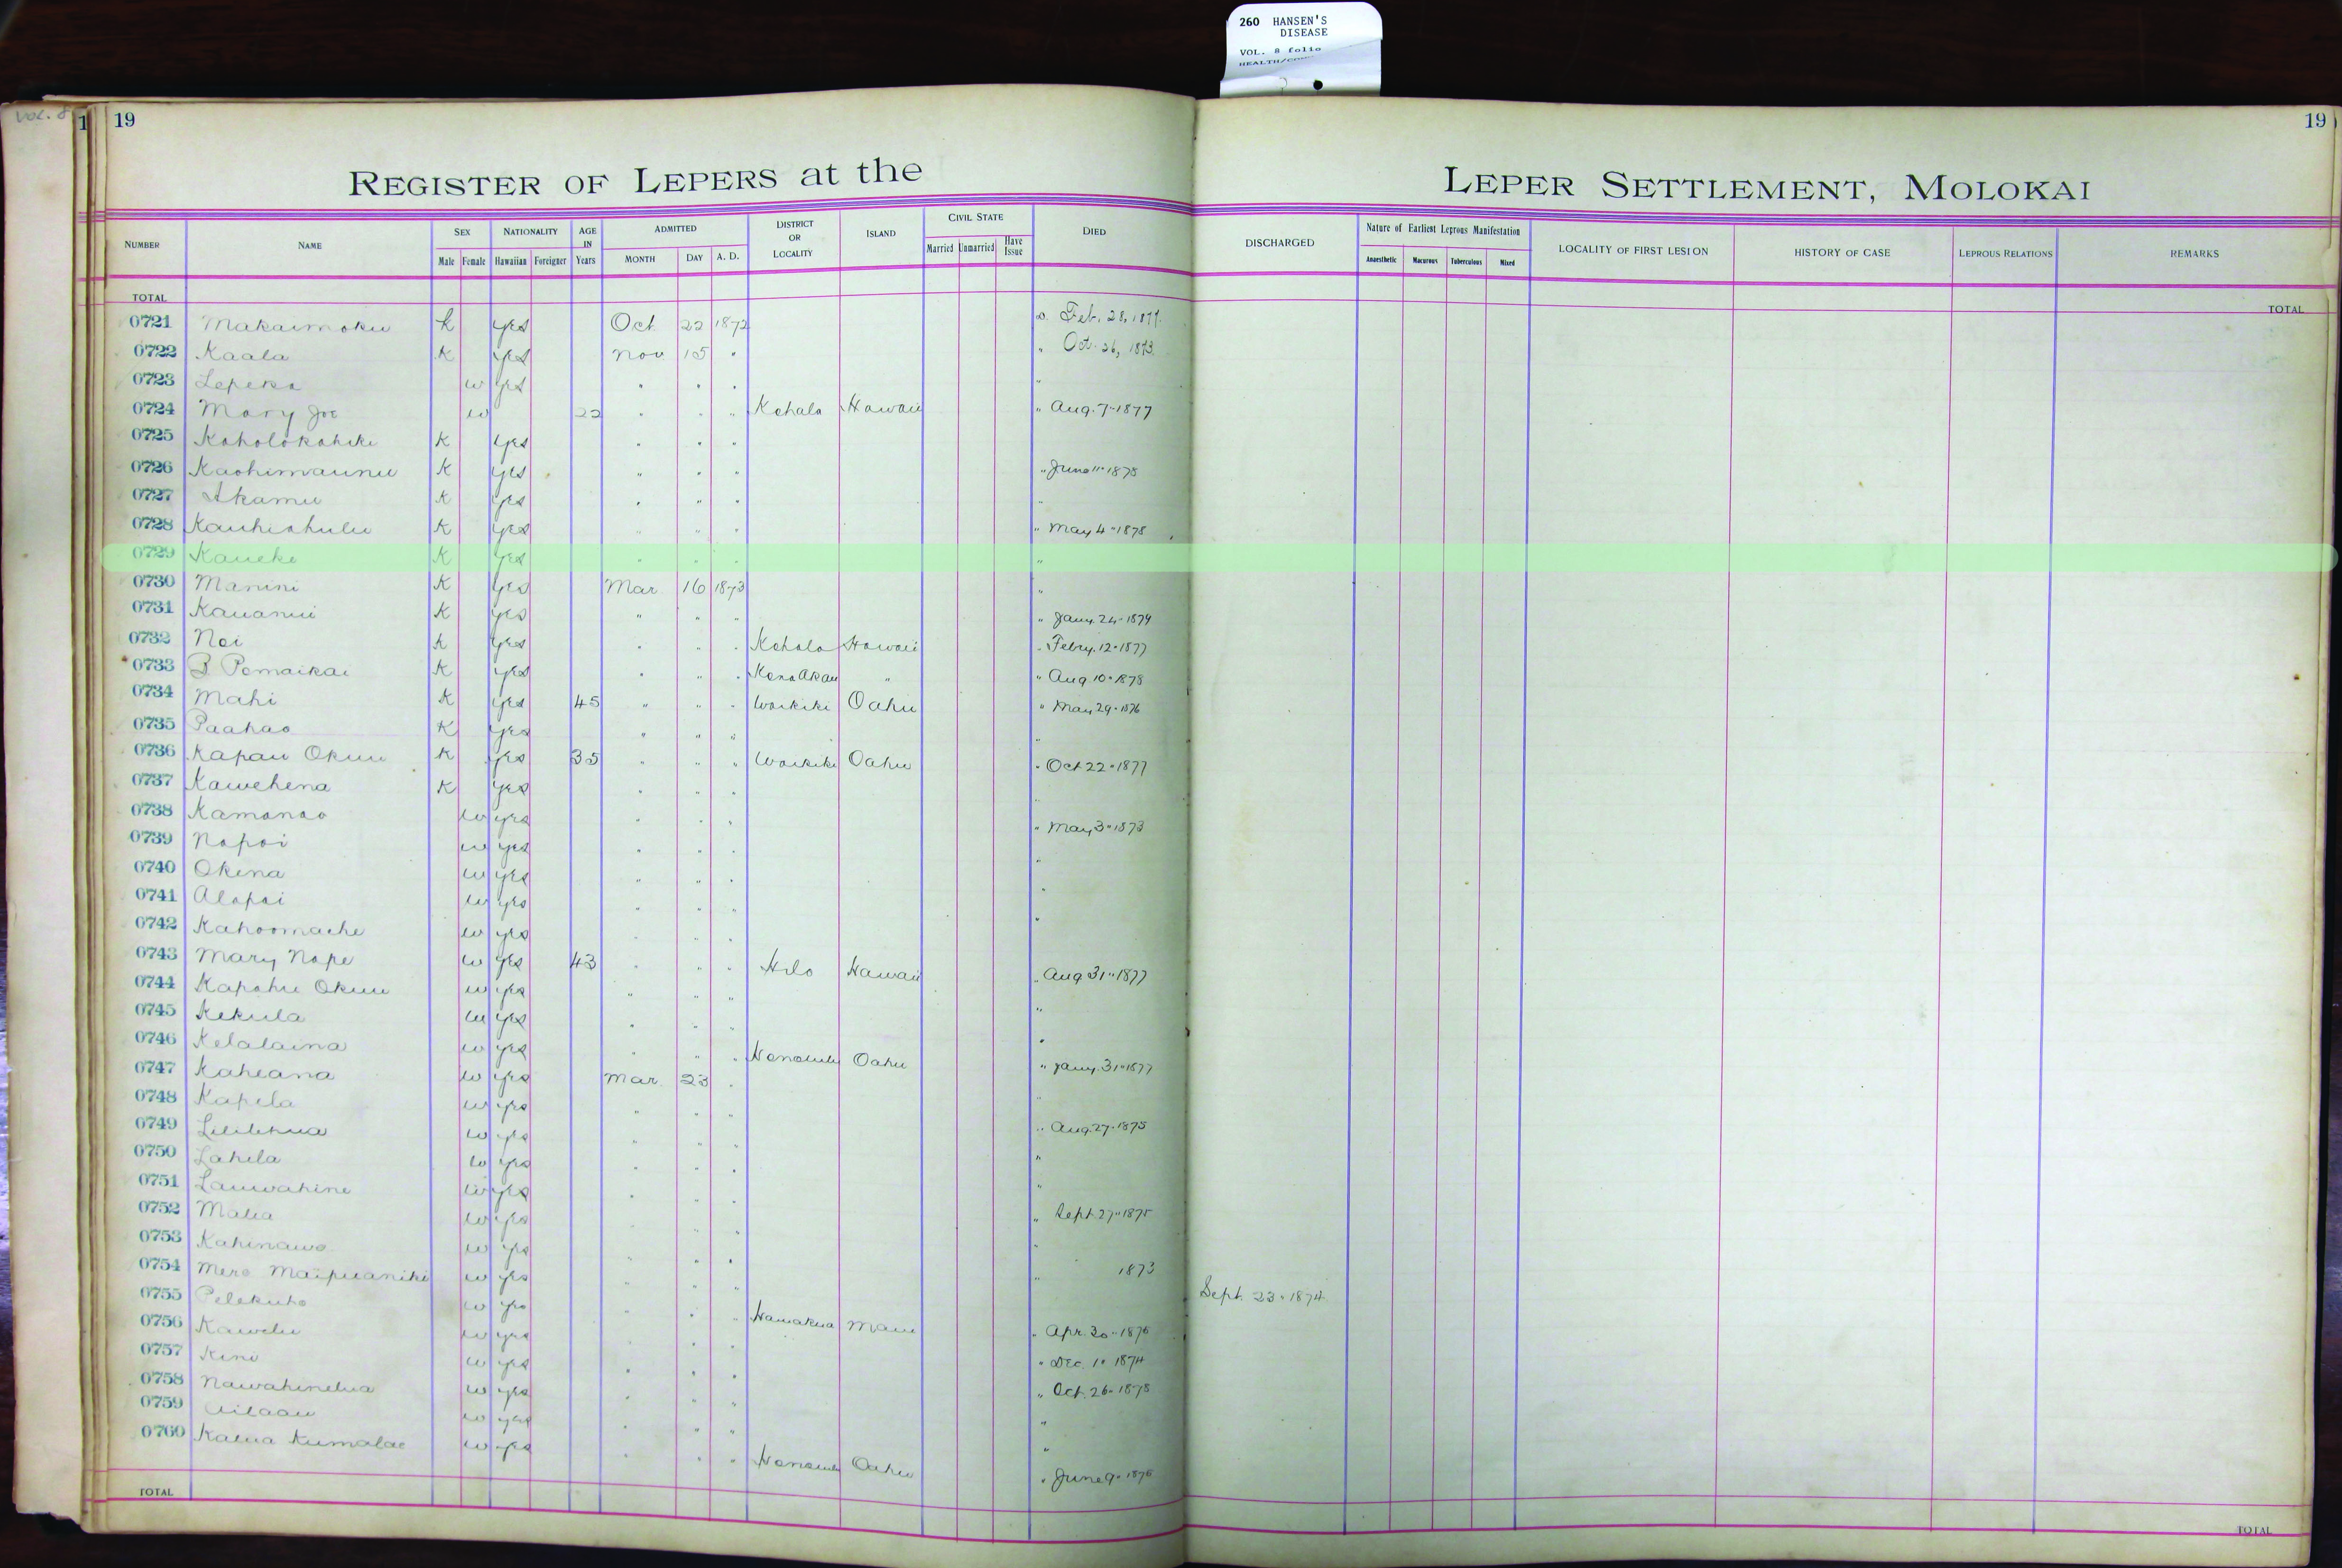 260 HANSEN'S
DISEASE
VOL. 8 folio
Vol. 8
1 19
19
REGISTER OF LEPERS at the LEPER SETTLEMENT, MOLOKAI
NUMBER NAME SEX NATIONALITY AGE IN Years ADMITTED DISTRICT OR LOCALITY ISLAND CIVIL STATE DIED DISCHARGED Nature of Earliest Leprous Manifestation LOCALITY OF FIRST LESION HISTORY OF CASE LEPROUS RELATIONS REMARKS
Male Female Hawaiian Foreigner MONTH DAY A. D. Married Unmarried Have Issue Anaesthetic Macurous Tuberculous Mixed
TOTAL TOTAL
0721 Makaimoku k yes Oct 22 1872 D. Feb. 28, 1877.
0722 Kaala K yes Nov 15 " " Oct. 26, 1873.
0723 Lepeka w yes " " " "
0724 Mary Joe w 22 " " " Kohala Hawaii " Aug. 7 " 1877
0725 Koholokahiki K yes " " "
0726 Kaohimaunu K yes " " " " June 11 " 1878
0727 Akamu K yes " " " "
0728 Kauhiahulu K yes " " " " May 4 " 1878
0729 Kaueke K yes " " " "
0730 Manini K yes Mar 16 1873 "
0731 Kauanui K yes " " " " Jany. 24 " 1879
0732 Noi k yes " " " Kohala Hawaii " Febry. 12 " 1877
0733 B Pomaikai K yes " " " Kona Akau " " Aug 10 " 1878
0734 Mahi K yes 45 " " " Waikiki Oahu " May 29 " 1876
0735 Paahao K yes " " " "
0736 Kapau Okuu K yes 35 " " " Waikiki Oahu " Oct 22 " 1877
0737 Kawehena K yes " " " "
0738 Kamanao w yes " " " " May 3 " 1873
0739 Napoi w yes " " " "
0740 Okina w yes " " " "
0741 Alapai w yes " " " "
0742 Kahoomaehe w yes " " "
0743 Mary Nape w yes 43 " " " Hilo Hawaii " Aug 31 " 1877
0744 Kapahu Okuu w yes " " " "
0745 Kekula w yes " " " "
0746 Kelalaina w yes " " " Honolulu Oahu " Jany. 31 " 1877
0747 Kaheana w yes Mar. 23 " "
0748 Kapela w yes " " " " Aug. 27 " 1875
0749 Lililehua w yes " " " "
0750 Lahela w yes " " " "
0751 Lauwahine w yes " " "
0752 Malia w yes " " " " Sept. 27 " 1875
0753 Kahinawe w yes " " " "
0754 Mere Maipuaniki w yes " " " " 1873
0755 Pelekuho w yes " " " Sept. 23 " 1874
0756 Kawelu w yes " " " Hamakua Maui " Apr. 30 " 1876
0757 Kini w yes " " " " Dec. 1 " 1874
0758 Nawahinelua w yes " " " " Oct. 26 " 1878
0759 Ailaau w yes " " " "
0760 Kalua Kumalae w yes " " " Honolulu Oahu " June 9 " 1876
TOTAL TOTAL